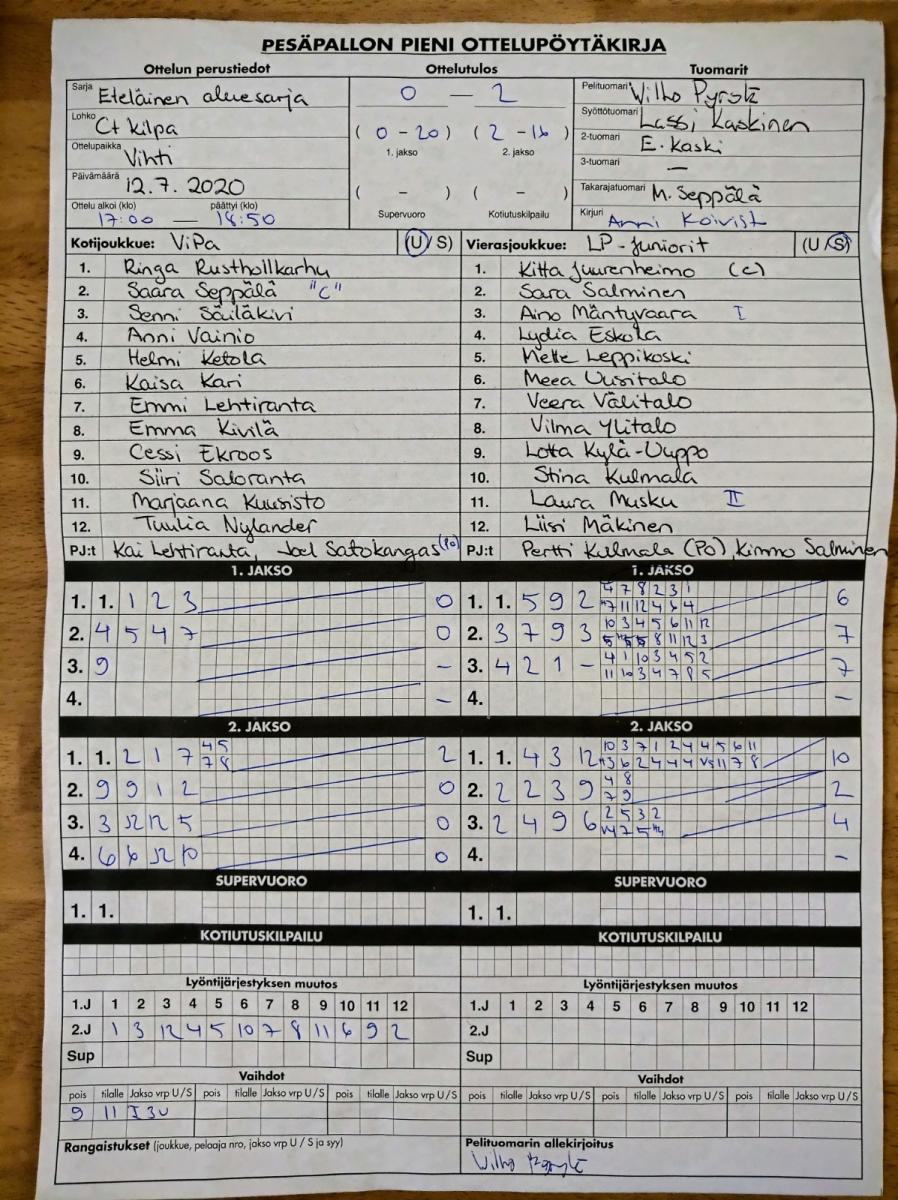 PESÄPALLON PIENI OTTELUPÖYTÄKIRJA
Ottelun perustiedot Ottelutulos Tuomarit
Sarja Eteläinen aluesarja
0 — 2
Pelituomari Vilho
Lohko C+ Kilpa
Syöttötuomari Lassi Kaskinen
(0 - 20) (2 - 16)
1. jakso 2. jakso
2-tuomari E. Kaski
Ottelupaikka Vihti
3-tuomari —
Päivämäärä 12.7. 2020
( - ) ( - )
Supervuoro Kotiutuskilpailu
Takarajatuomari M. Seppälä
Ottelu alkoi (klo) päättyi (klo)
17:00 — 18:50
Kirjuri Anni
Kotijoukkue: ViPa (U/S) Vierasjoukkue: LP-Juniorit (U/S)
1. Ringa 1. Kitta Juurenheimo (c)
2. Saara Seppälä "C" 2. Sara Salminen
3. Senni Säiläkivi 3. Aino Mäntyvaara I
4. Anni Vainio 4. Lydia Eskola
5. Helmi Ketola 5. Leppikoski
6. Kaisa Kari 6. Meea Uusitalo
7. Emmi Lehtiranta 7. Veera Välitalo
8. Emma Kivilä 8. Vilma Ylitalo
9. Cessi Ekroos 9. Lotta Kylä-Uuppo
10. Siiri Saloranta 10. Stina Kulmala
11. Marjaana Kuusisto 11. Laura Musku II
12. Tuulia Nylander 12. Liisi Mäkinen
PJ:t Kai Lehtiranta, Joel Satokangas (PO) PJ:t Pertti Kulmala (PO), Kimmo Salminen
1. JAKSO 1. JAKSO
4 7 8 2 3 1
1. 1. 1 2 3 0 1. 1. 5 9 2 6
7 11 12 4 6 4
10 3 4 5 6 11 12
2. 4 5 4 7 0 2. 3 7 9 3 7
8 11 12 3
4 1 10 3 4 5 2
3. 9 – 3. 4 2 1 – 7
11 10 3 4 7 8 5
4. – 4. –
2. JAKSO 2. JAKSO
4 5 10 3 7 1 2 4 4 5 6 11
1. 1. 2 1 7 2 1. 1. 4 3 12 10
7 8 3 6 2 4 4 4 11 7 8
4 8
2. 9 9 1 2 0 2. 2 2 3 9 2
7 9
2 5 3 2
3. 3 12 12 5 0 3. 2 4 9 6 4
7 5
4. 6 6 12 10 0 4. –
SUPERVUORO SUPERVUORO
1. 1. 1. 1.
KOTIUTUSKILPAILU KOTIUTUSKILPAILU
Lyöntijärjestyksen muutos Lyöntijärjestyksen muutos
1.J 1 2 3 4 5 6 7 8 9 10 11 12 1.J 1 2 3 4 5 6 7 8 9 10 11 12
2.J 1 3 12 4 5 10 7 8 11 6 9 2 2.J
Sup Sup
Vaihdot Vaihdot
pois tilalle Jakso vrp U/S pois tilalle Jakso vrp U/S pois tilalle Jakso vrp U/S pois tilalle Jakso vrp U/S pois tilalle Jakso vrp U/S pois tilalle Jakso vrp U/S
9 11 I 3U
Rangaistukset (joukkue, pelaaja nro, jakso vrp U / S ja syy) Pelituomarin allekirjoitus
Vilho